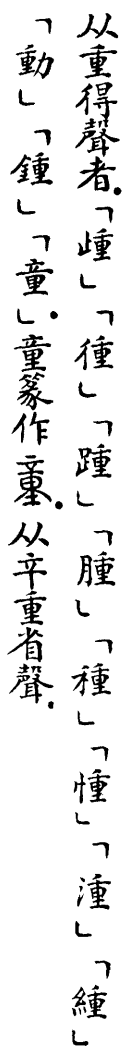 从重得聲者.「歱」「徸」「踵」「腫」「種」「㥁」「湩」「緟」
「動」「鍾」「童」.童篆作𡔞.从䇂重省聲.